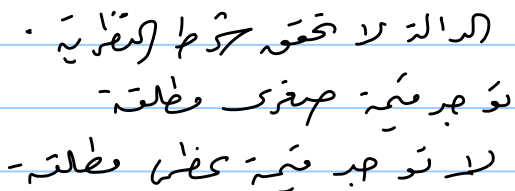 الدالة لا تحقق شرط النظرية .
توجد قيمة صغرى مطلقة
لا توجد قيمة عظمى مطلقة